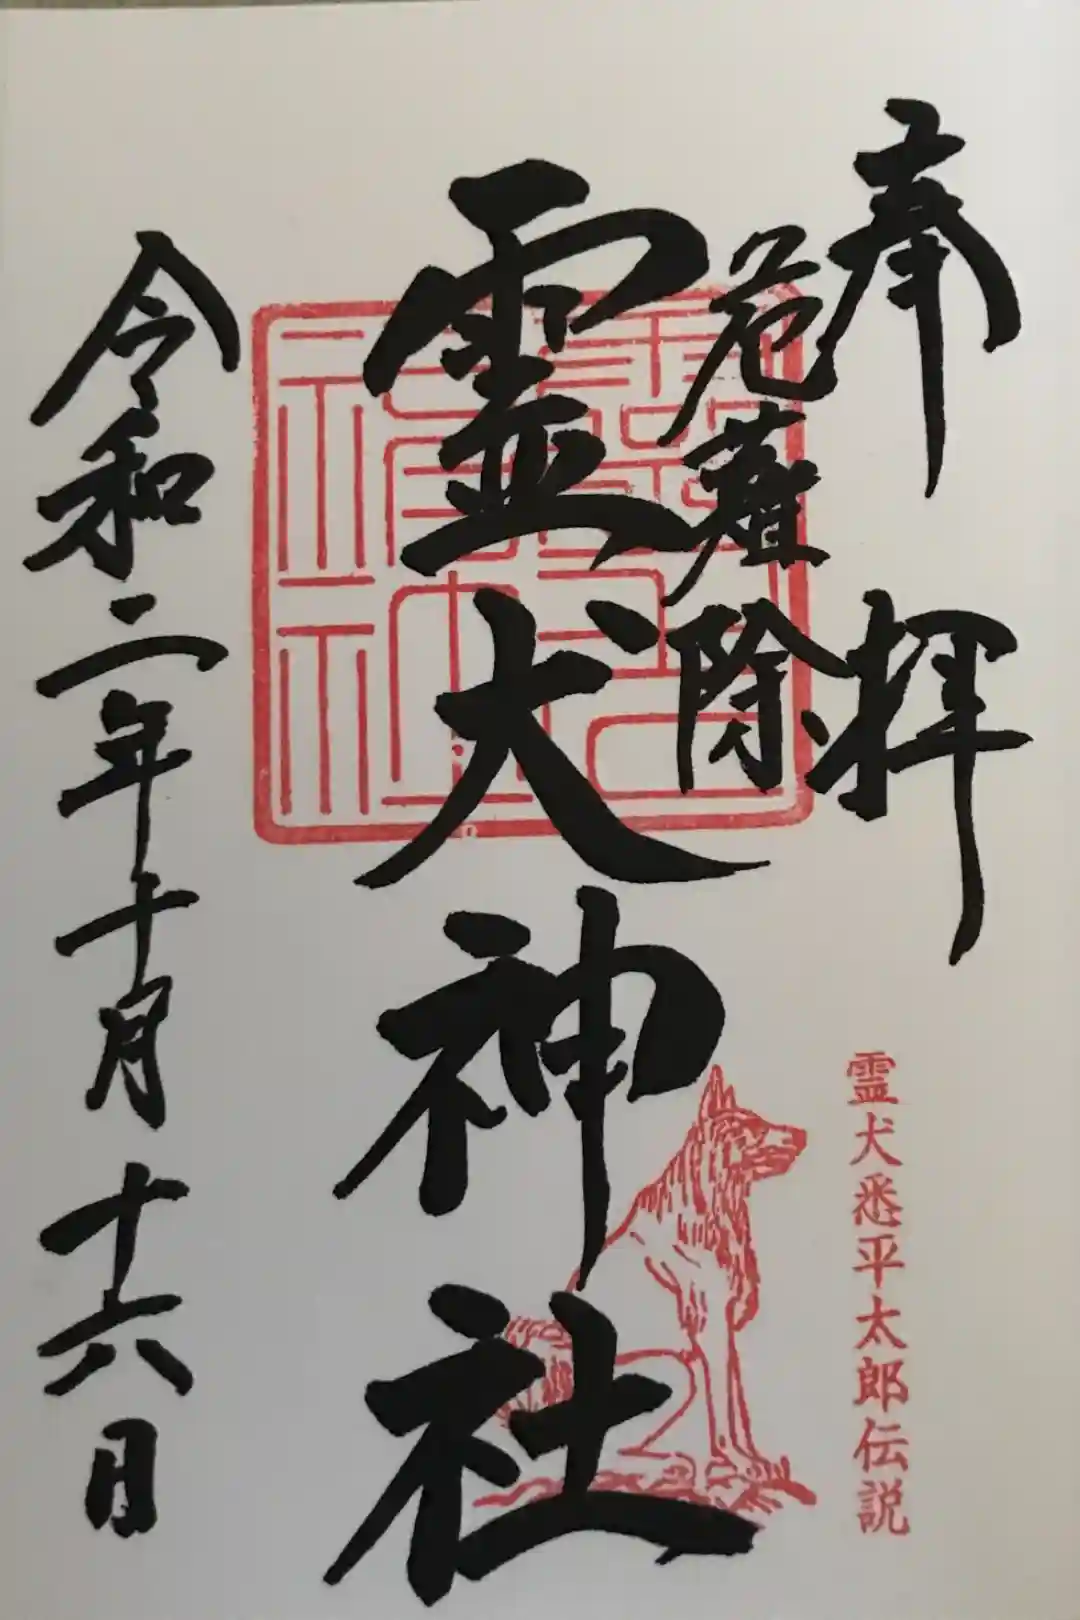 奉拝
危難除
霊犬神社
霊犬悉平太郎伝説
令和二年十月十六日